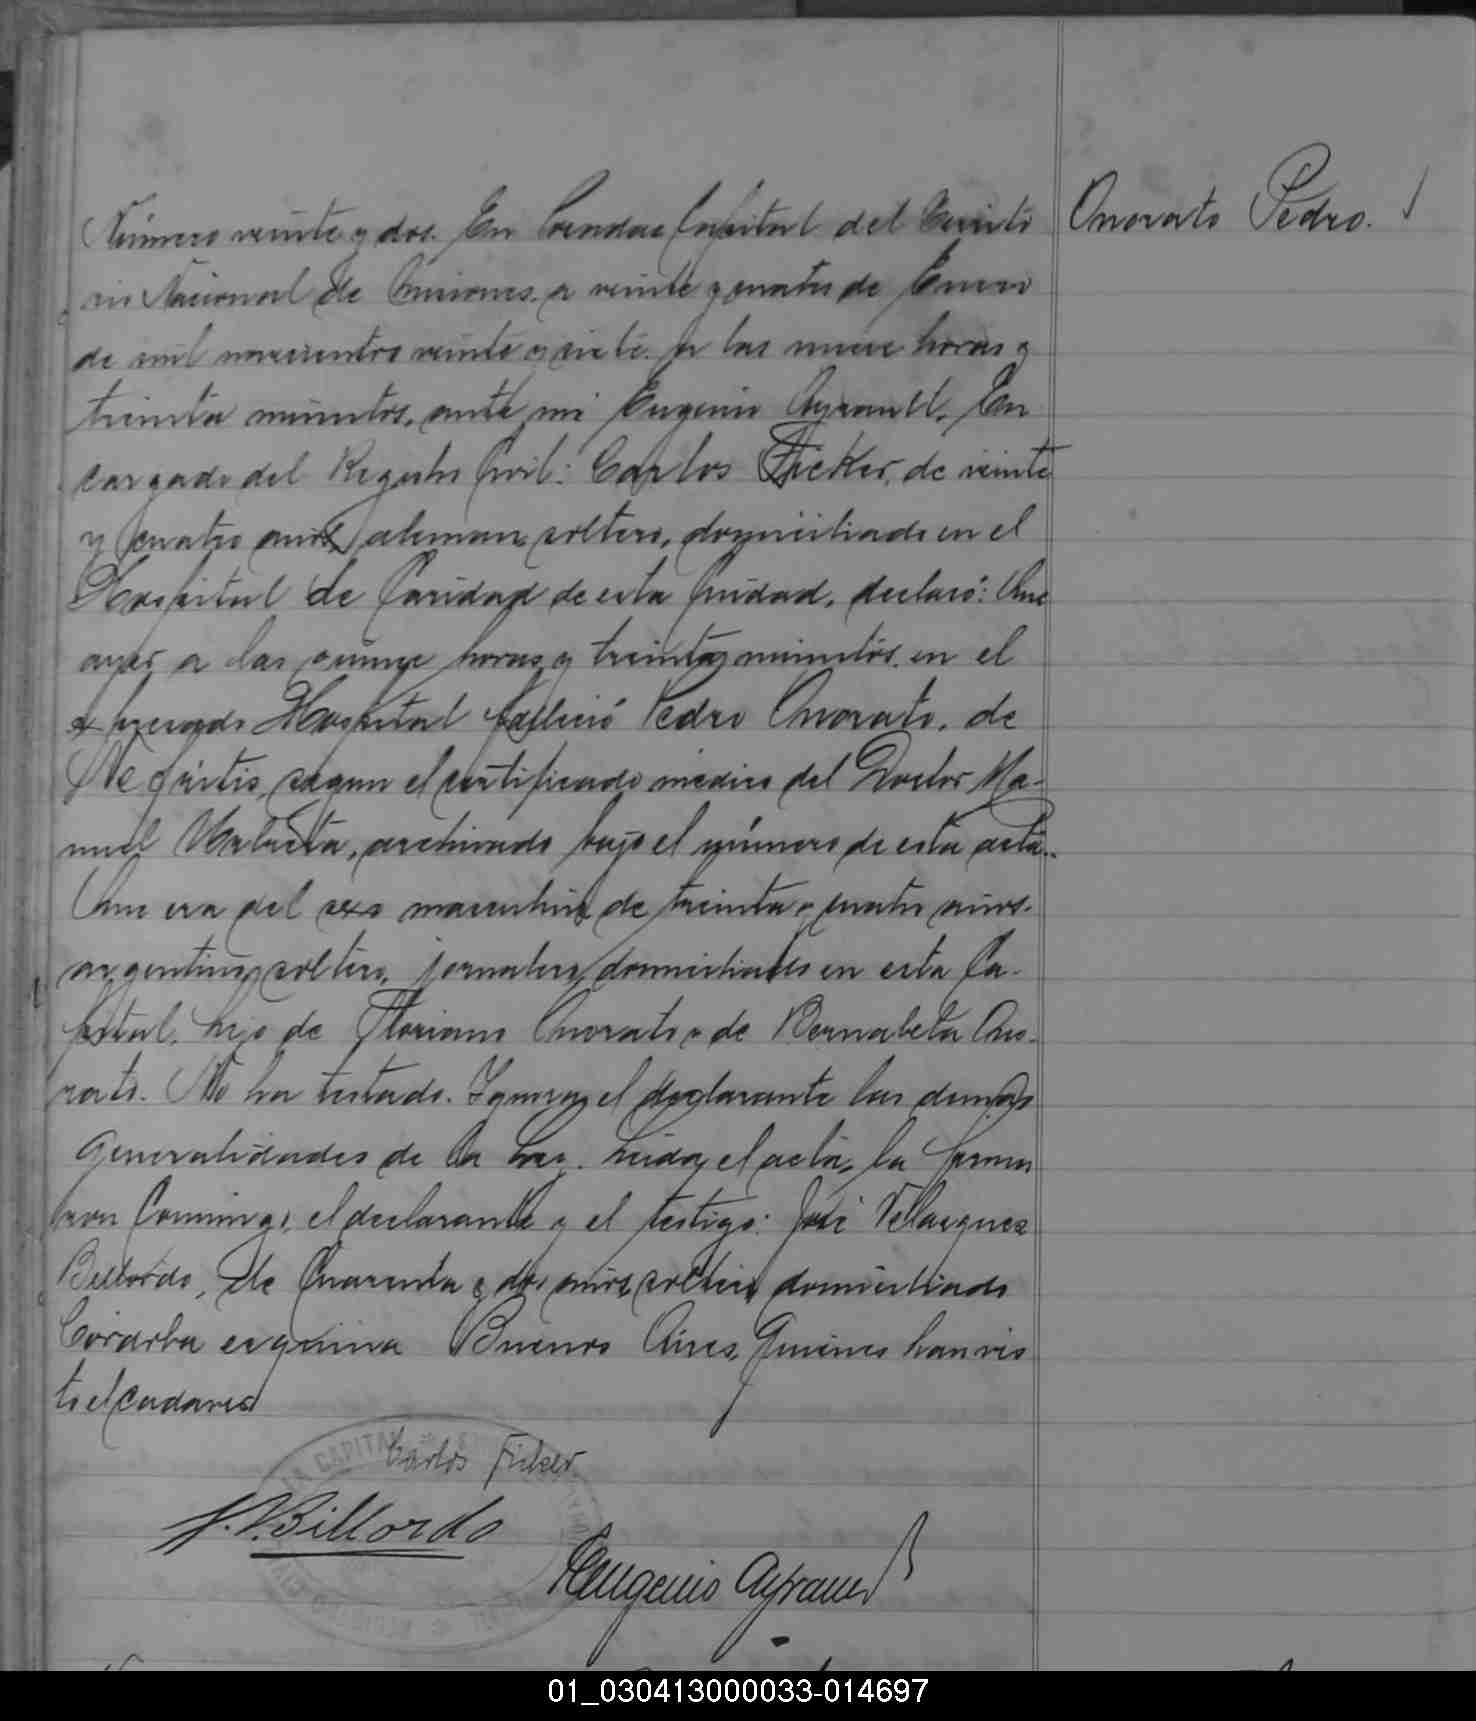 Onorato Pedro.
Número veinte y dos. En Posadas Capital del Territo
rio Nacional de Misiones, a veinte y cuatro de Enero
de mil novecientos veinte y siete a las nueve horas y
treinta minutos, ante mi Eugenio Ayrault, En
cargado del Registro Civil: Carlos Fricker, de veinte
y cuatro años, aleman, soltero, domiciliado en el
Hospital de Caridad de esta Ciudad, declaró: Que
ayer a las quince horas y treinta minutos en el
expresado Hospital falleció Pedro Onorato, de
Nefritis, segun el certificado medico del Doctor Ma-
nuel archivado bajo el número de esta acta.
Que era del sexo masculino de treinta y cuatro años,
argentino, soltero, jornalero, domiciliado en esta Ca-
pital, hijo de Floriano Onorato y de Bernabela Ono-
rato. No ha testado. Ignora el declarante las demás
generalidades de la ley. Leida el acta, la firma
ron Conmigo, el declarante y el testigo: José Velazquez
Billordo, de Cuarenta y dos años, soltero, domiciliado
Córdoba esquina Buenos Aires, Quienes han vis
to el cadaver
Carlos Fricker
J. V. Billordo
Eugenio Ayrault
01_030413000033-014697